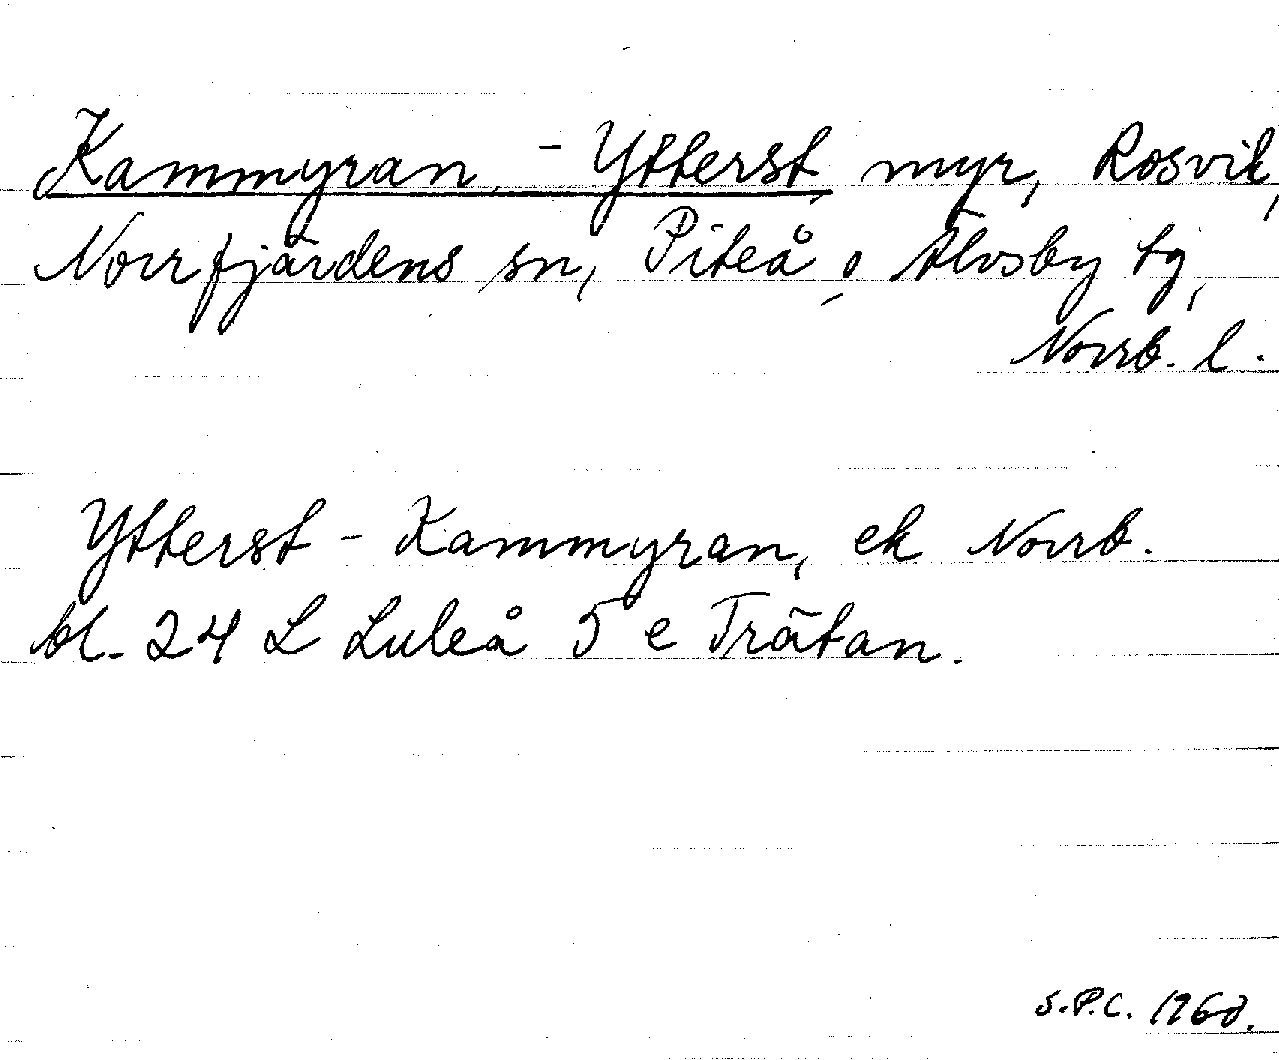 Kammyran, - Ytterst, myr, Rosvik,
Norrfjärdens sn, Piteå o Älvsby tg,
Norrb. l.
Ytterst - Kammyran, ek Norrb.
bl. 24 L Luleå 5 e Trätan.
S.P.C. 1960.